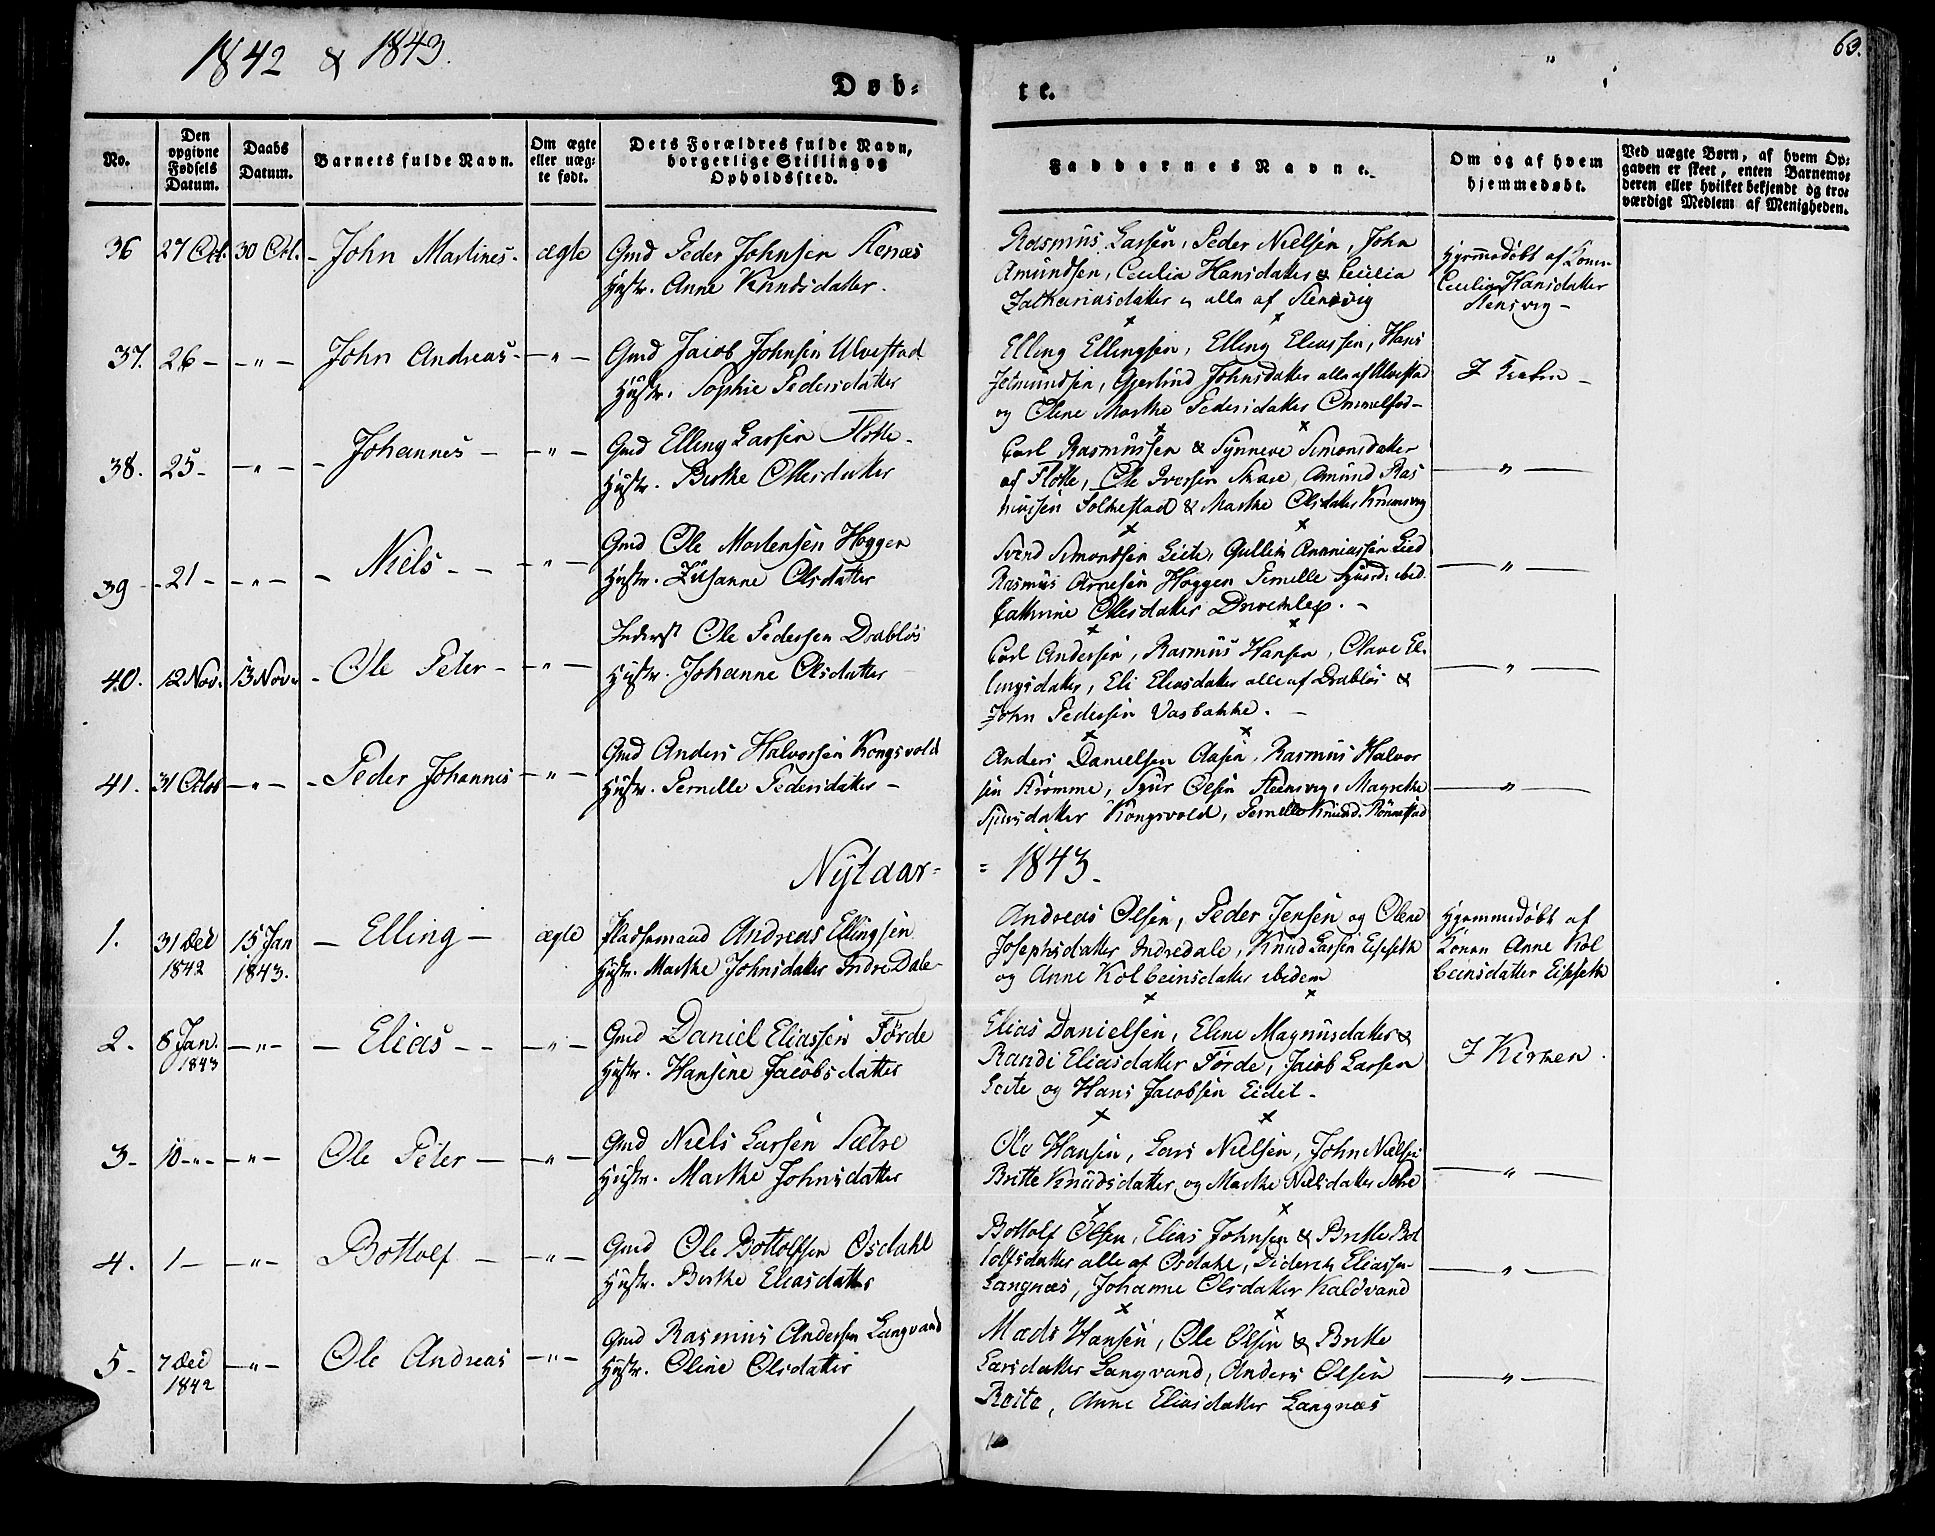 1842 & 1843.
63.
Døb-
te.
No.
Den opgivne Fødsels Datum.
Daabs Datum.
Barnets fulde Navn.
Om ægte eller uæg- te født.
Dets Forældres fulde Navn, borgerlige Stilling og Opholdssted.
Faddernes Navne.
Om og af hvem hjemmedøbt.
Ved uægte Børn, af hvem Op- gaven er skeet, enten Barnemo- deren eller hvilket bekjendt og tro- værdigt Medlem af Menigheden.
36 27 Oct. 30 Oct. - John Martines - ægte
Gmd Peder Johnsen
Hustr. Anne Knudsdatter.
Rasmus Larsen, Peder Nielsen, John
Amundsen, Cecilia Hansdatter & Cecilia
Zachariasdatter alle af Stensvig
Hjemmedøbt af
Cecilia Hansdatter
Stensvig -
37. 26 - - " - John Andreas - - " -
Gmd Jacob Johnsen Ulvestad
Hustr. Sophie Pedersdatter
Elling Ellingsen, Elling Eliassen, Hans
Gjertrud Johnsdatter alle af Ulvestad
og Olene Marthe Pedersdatter
I
38. 25 - - " - - Johannes - - " -
Gmd Elling Larsen Flotte -
Hustr. Birthe Ollesdatter
Carl Rasmussen & Synneve Simonsdatter
af Flotte, Ole Iversen Skare, Amund Ras
mussen Folkestad & Marthe Olsdatter
- " -
39 - 21 - - " - - Niels - - - " -
Gmd Ole Mortensen Hoggen
Hustr. Zusanne Olsdatter
Svend Simondsen Leite, Gullik Annniassen Lied
Rasmus Arnesen Hoggen Pernille Sjurd. ibid.
Cathrine Ollesdatter -
- " -
40. 12 Nov. 13 Nov. - Ole Peter - - " -
Inderst Ole Pedersen Drabløs
Hustr. Johanne Olsdatter
Carl Andersen, Rasmus Hansen, Olave El-
lingsdatter, Eli Eliasdatter alle af Drabløs &
John Pedersen Vasbakke. -
- " -
41. 31 Octob - " - - Peder Johannes - " -
Gmd Anders Halvorsen Kongsvold
Hustr. Pernille Pedersdatter -
Anders Danielsen Aasen, Rasmus Halvor
sen Krømme, Sjur Olsen Steensvig, Magrethe
Sjursdatter Kongsvold, Pernille Knud. Rønnestad
- " -
Nytaar -
= 1843 -
1. 31 Dec 15 Jan - Elling - ægte
1842 1843.
Pladsemand Andreas Ellingsen
Hustr. Marthe Johnsdatter Indre Dale
Andreas Olsen, Peder Jensen og Olene
Josephsdatter Indredale, Knud Larsen Eipseth
og Anne Kolbeinsdatter ibidem
Hjemmedøbt af
Konen Anne Kol
beinsdatter Eipseth
2. 8 Jan. - " - - Elias - - - " -
1843
Gmd Daniel Eliassen Førde
Hustr. Hansine Jacobsdatter
Elias Danielsen, Eline Magnusdatter &
Randi Eliasdatter Førde, Jacob Larsen
Leite og Hans Jacobsen Eidet -
I Kirken.
3 - 10 - " - - " - Ole Peter - - " -
Gmd Niels Larsen Sætre
Hustr. Marthe Johnsdatter
Ole Hansen, Lars Nielsen, John Nielsen
Britte Knudsdatter og Marthe Nielsdatter Sætre
- " -
4. 1 - - " - Bottolf - - " -
Gmd Ole Bottolfsen Osdahl
Hustr. Birthe Eliasdatter
Bottolf Olsen, Elias Johnsen & Britte Bot
tolfsdatter alle af Osdahl, Diderik Eliassen
Langnæs, Johanne Olsdatter Kaldvand
- " -
5 - 7 Dec - " - Ole Andreas - " -
1842
Gmd Rasmus Andersen Langvand
Hustr. Oline Olsdatter
Mads Hansen, Ole Olsen & Britte
Larsdatter Langvand, Anders Olsen
Reite, Anne Eliasdatter Langnæs
- " -